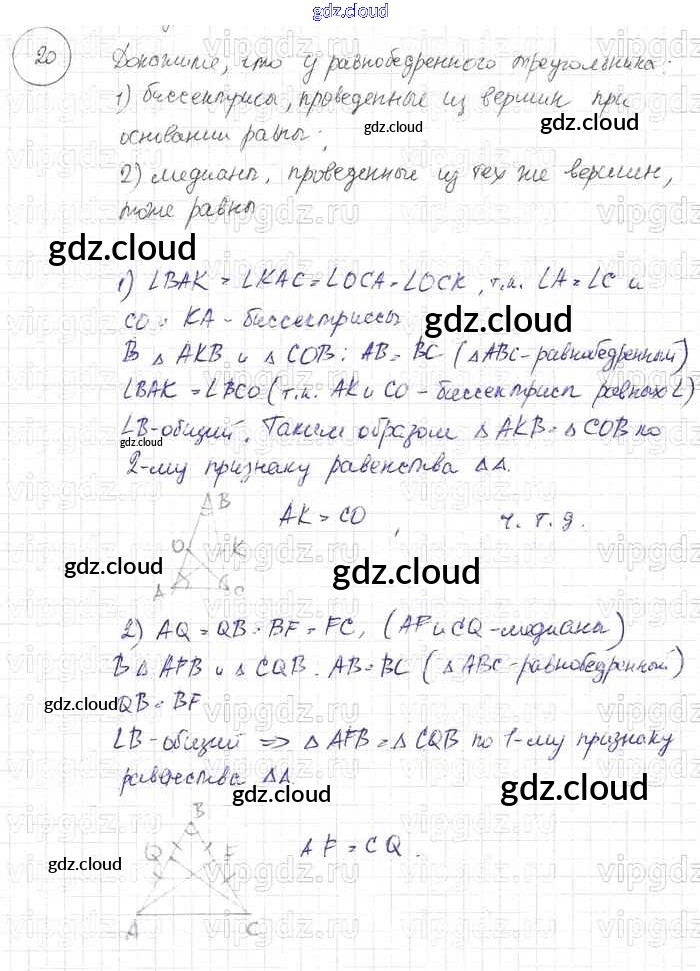 gdz.cloud
20 Докажите, что у равнобедренного треугольника:
1) биссектрисы, проведенные из вершин при
основании равны;
gdz.cloud
gdz.cloud
2) медианы, проведенные из тех же вершин,
тоже равны
gdz.cloud
1) ∠BAK = ∠KAC = ∠OCA = ∠OCK, т.к. ∠A = ∠C и
CO и KA - биссектриссы
gdz.cloud
В △ AKB и △ COB: AB = BC (△ABC - равнобедренный)
∠BAK = ∠BCO (т.к. AK и CO - биссектрисы равных ∠)
∠B - общий. Таким образом △ AKB = △ COB по
gdz.cloud
2-му признаку равенства △△.
AK = CO, ч.т.д.
B
O K
A C
gdz.cloud
gdz.cloud
2) AQ = QB = BF = FC, (AF и CQ - медианы)
В △ AFB и △ CQB: AB = BC (△ ABC - равнобедренный)
gdz.cloud QB = BF
∠B - общий => △ AFB = △ CQB по 1-му признаку
равенства △△
gdz.cloud
gdz.cloud
B
Q F
A C
AF = CQ.
gdz.cloud
gdz.cloud